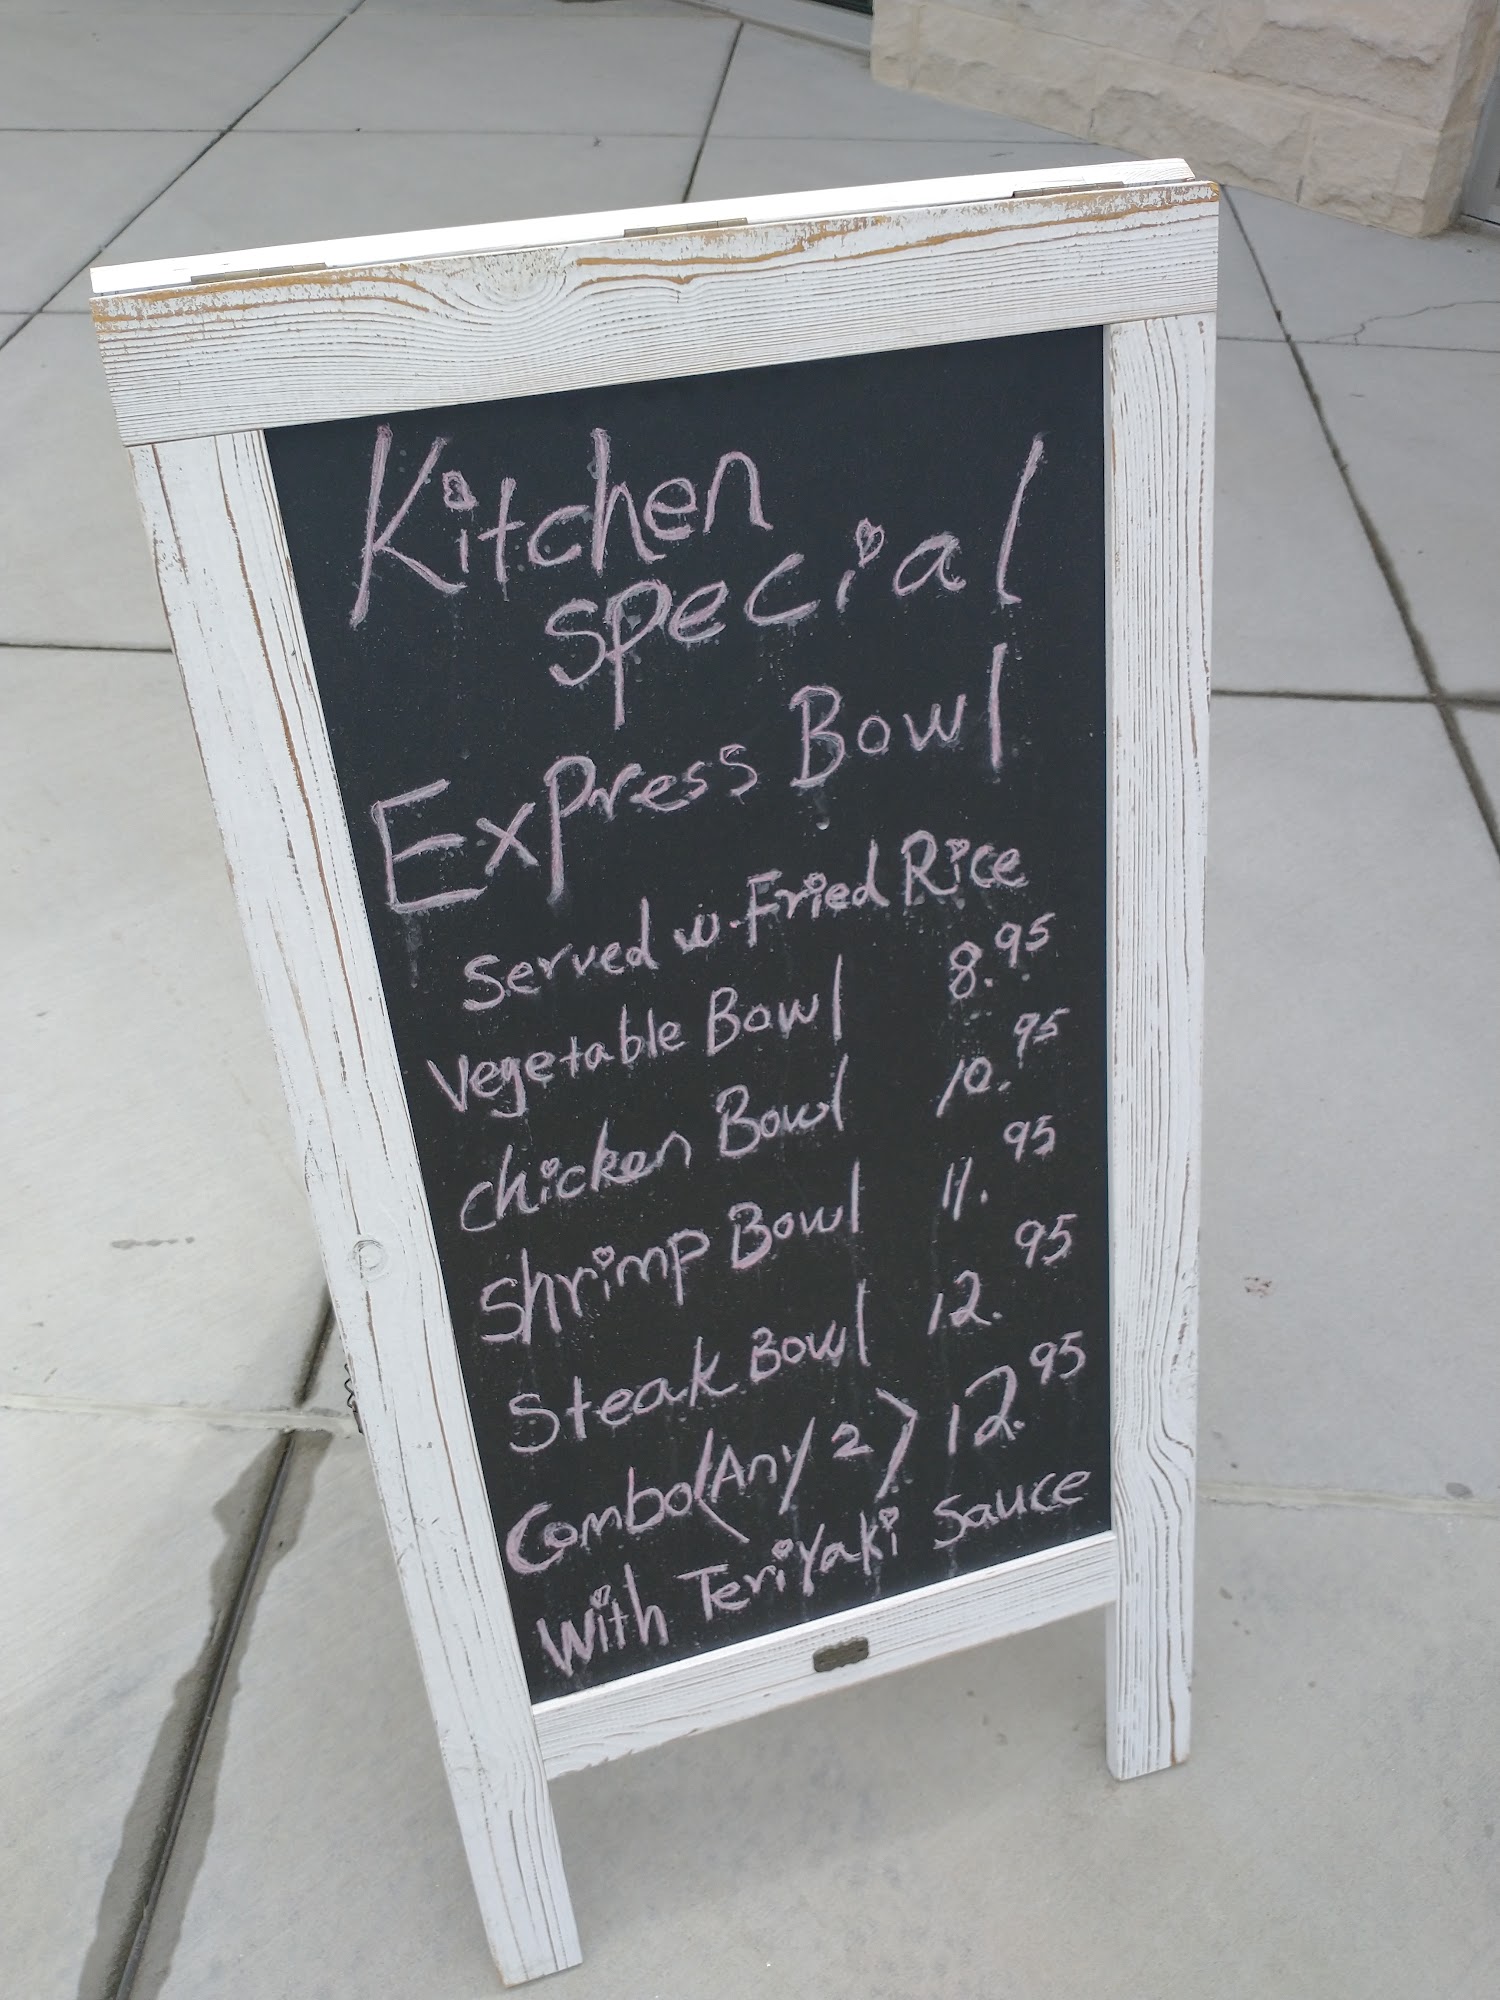 Kitchen
special
Express Bowl
Served w. Fried Rice
Vegetable Bowl 8.95
chicken Bowl 10.95
Shrimp Bowl 11.95
Steak Bowl 12.95
Combo(Any 2) 12.95
With Teriyaki Sauce